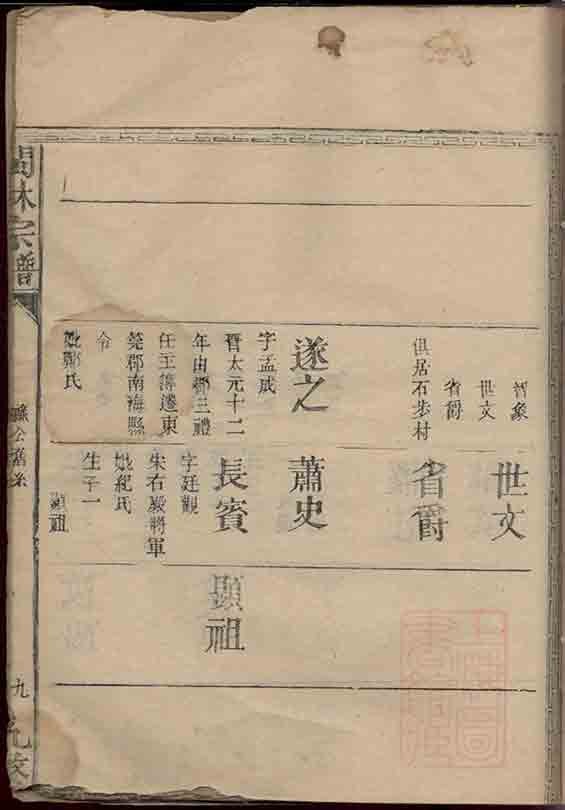 智象
世文
省爵
俱居石步村
遂之
字孟成
晉太元十二
年由鄉三禮
任王簿遷東
莞郡南海縣
令
妣鄭氏
世文
省爵
蕭史
長賓
字廷觀
朱右殿將軍
妣紀氏
生子一
顯祖
顯祖
林宗譜
九